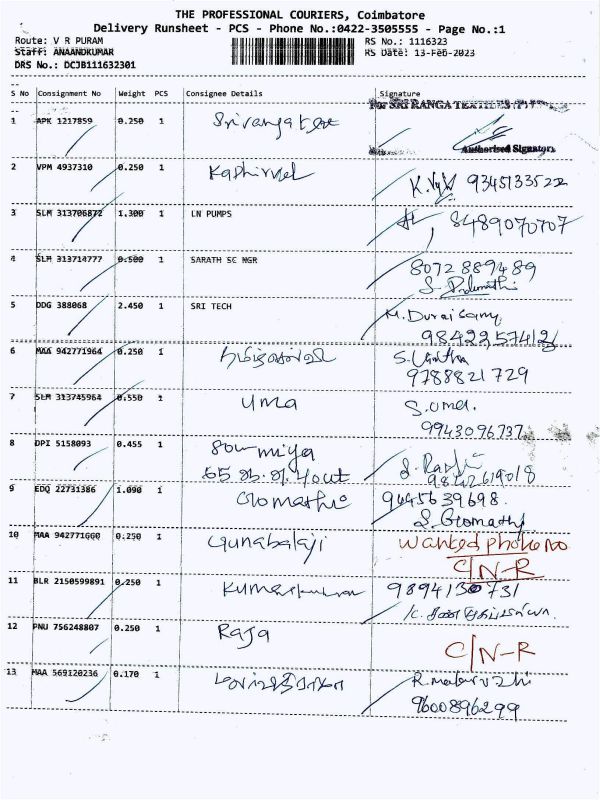 THE PROFESSIONAL COURIERS, Coimbatore
Delivery Runsheet - PCS - Phone No.:0422-3505555 - Page No.:1
Route: V R PURAM RS No.: 1116323
Staff: ANAANDKUMAR RS Date: 13-Feb-2023
DRS No.: DCJB111632301
S No Consignment No Weight PCS Consignee Details Signature
For SRI RANGA
1 APK 1217859 0.250 1
Authorised Signatory
2 VPM 4937310 0.250 1 Kathirvel
9345133522
3 SLM 313706872 1.300 1 LN PUMPS 8489070707
4 SLM 313714777 0.500 1 SARATH SC NGR 8072889489
5 DDG 388068 2.450 1 SRI TECH M. Duraisamy
6 MAA 942771964 0.250 1
9788821729
7 SLM 313745964 0.550 1 uma S. uma.
9943096737
8 DPI 5158093 0.455 1 Sowmiya
9842619018
9 EDQ 22731386 1.090 1 Gomathi 9445639698.
S. Gomathi
10 MAA 942771660 0.250 1 Gunabalaji Wanted phone no
C/N-R
11 BLR 2150599891 0.250 1 9894130731
12 PNU 756248807 0.250 1 Raja
C/N-R
13 MAA 569120236 0.170 1 R. malarvizhi
9600896299